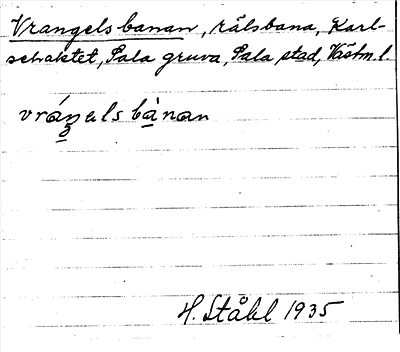 Vrangelsbanan, rälsbana, Karl-
schaktet, Sala gruva, Sala stad, Västm. l.
vráŋəls bànan
H. Ståhl 1935